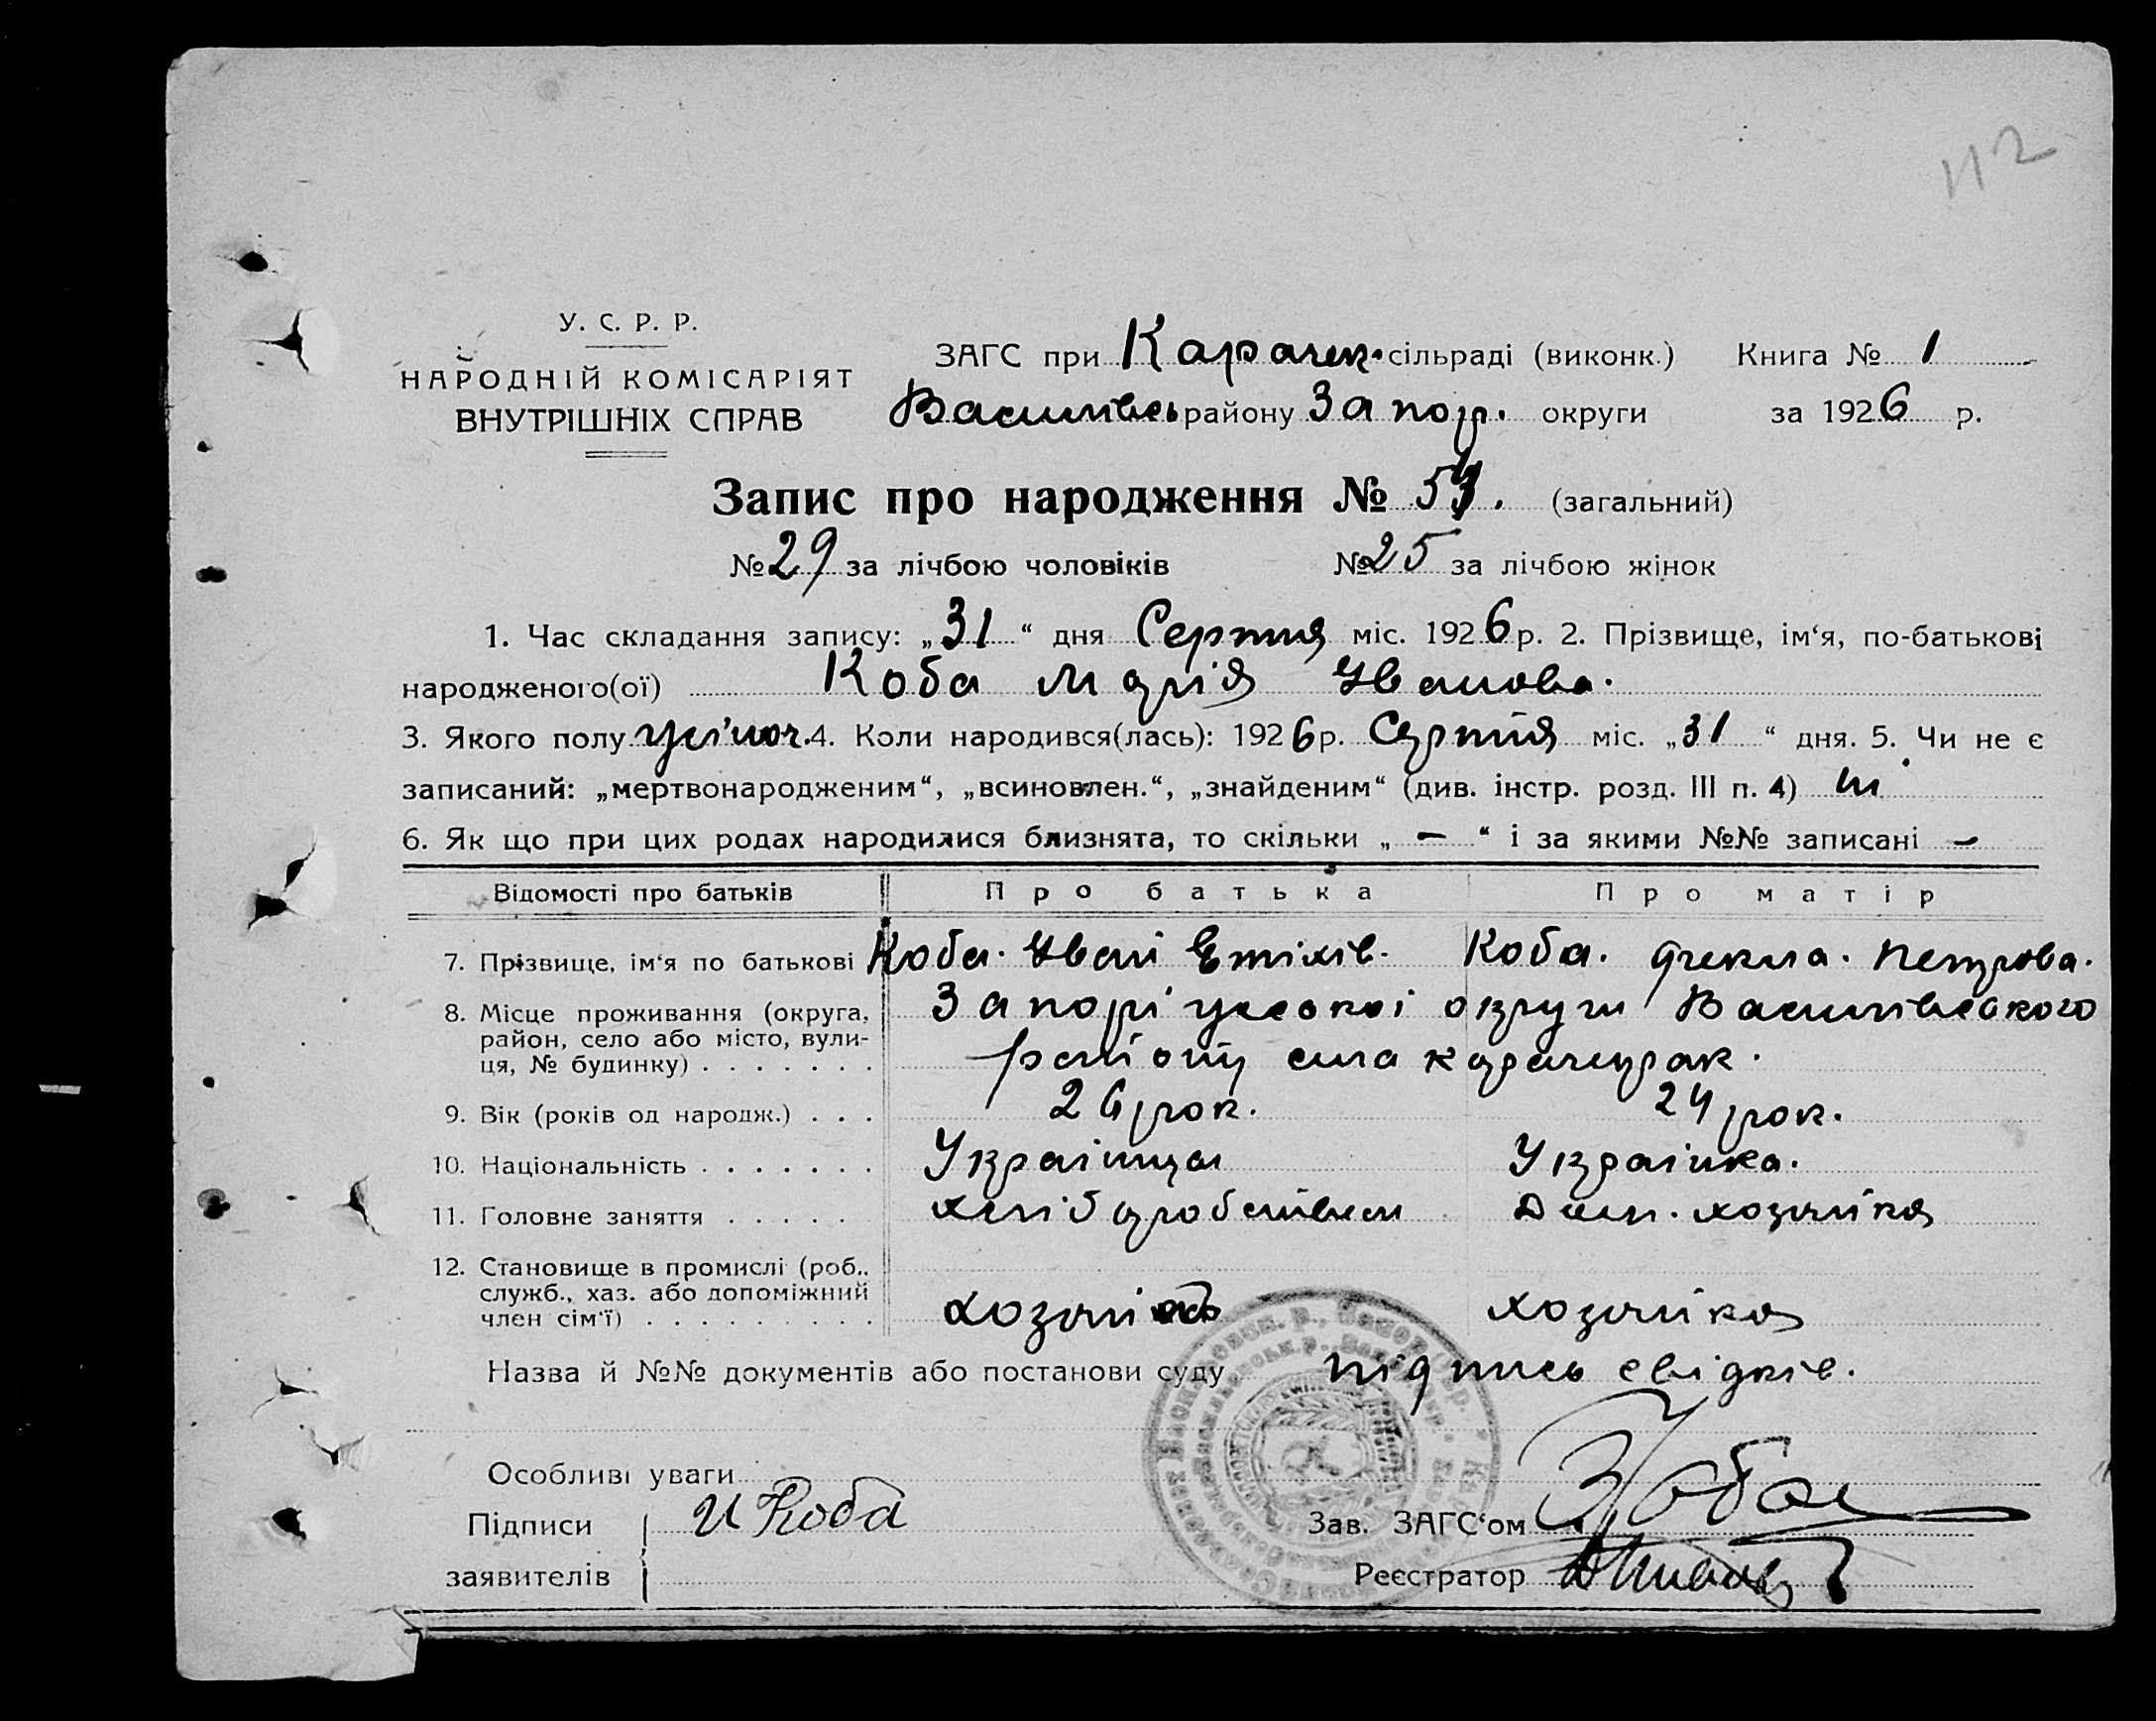 112
У. С. Р. Р.
НАРОДНІЙ КОМІСАРІЯТ
ВНУТРІШНІХ СПРАВ
ЗАГС при Карачек. сільраді (виконк.) Книга № 1
Василівсь району Запор. округи за 1926 р.
Запис про народження № (загальний)
№ 29 за лічбою чоловіків № 25 за лічбою жінок
1. Час складання запису: „31“ дня Серпня міс. 1926 р. 2. Прізвище, ім‘я, по-батькові
народженого(ої) Коба Марія Іванова.
3. Якого полу жіноч. 4. Коли народився(лась): 1926 р. Серпня міс. „31“ дня. 5. Чи не є
записаний: „мертвонародженим“, „всиновлен.“, „знайденим“ (див. інстр. розд. III п. 4) ні
6. Як що при цих родах народилися близнята, то скільки „ — “ і за якими №№ записані —
Відомості про батьків Про батька Про матір
7. Прізвище, ім‘я по батькові Коба. Іван Коба. Фекла. Петрова.
8. Місце проживання (округа, Запоріжської округи Василівського
район, село або місто, вули- району села Карачекрак.
ця, № будинку) . . . . . . .
9. Вік (років од народж.) . . . 26 рок. 24 рок.
10. Національність . . . . . . . Українця Українка.
11. Головне заняття . . . . . хліборобством Дом. хозяйка
12. Становище в промислі (роб.,
служб., хаз. або допоміжний
член сім‘ї) . . . . . . . . . хозяїн хозяйка
Назва й №№ документів або постанови суду підпись свідків.
Особливі уваги
Підписи И Коба Зав. ЗАГС‘ом Коба
заявителів Реєстратор